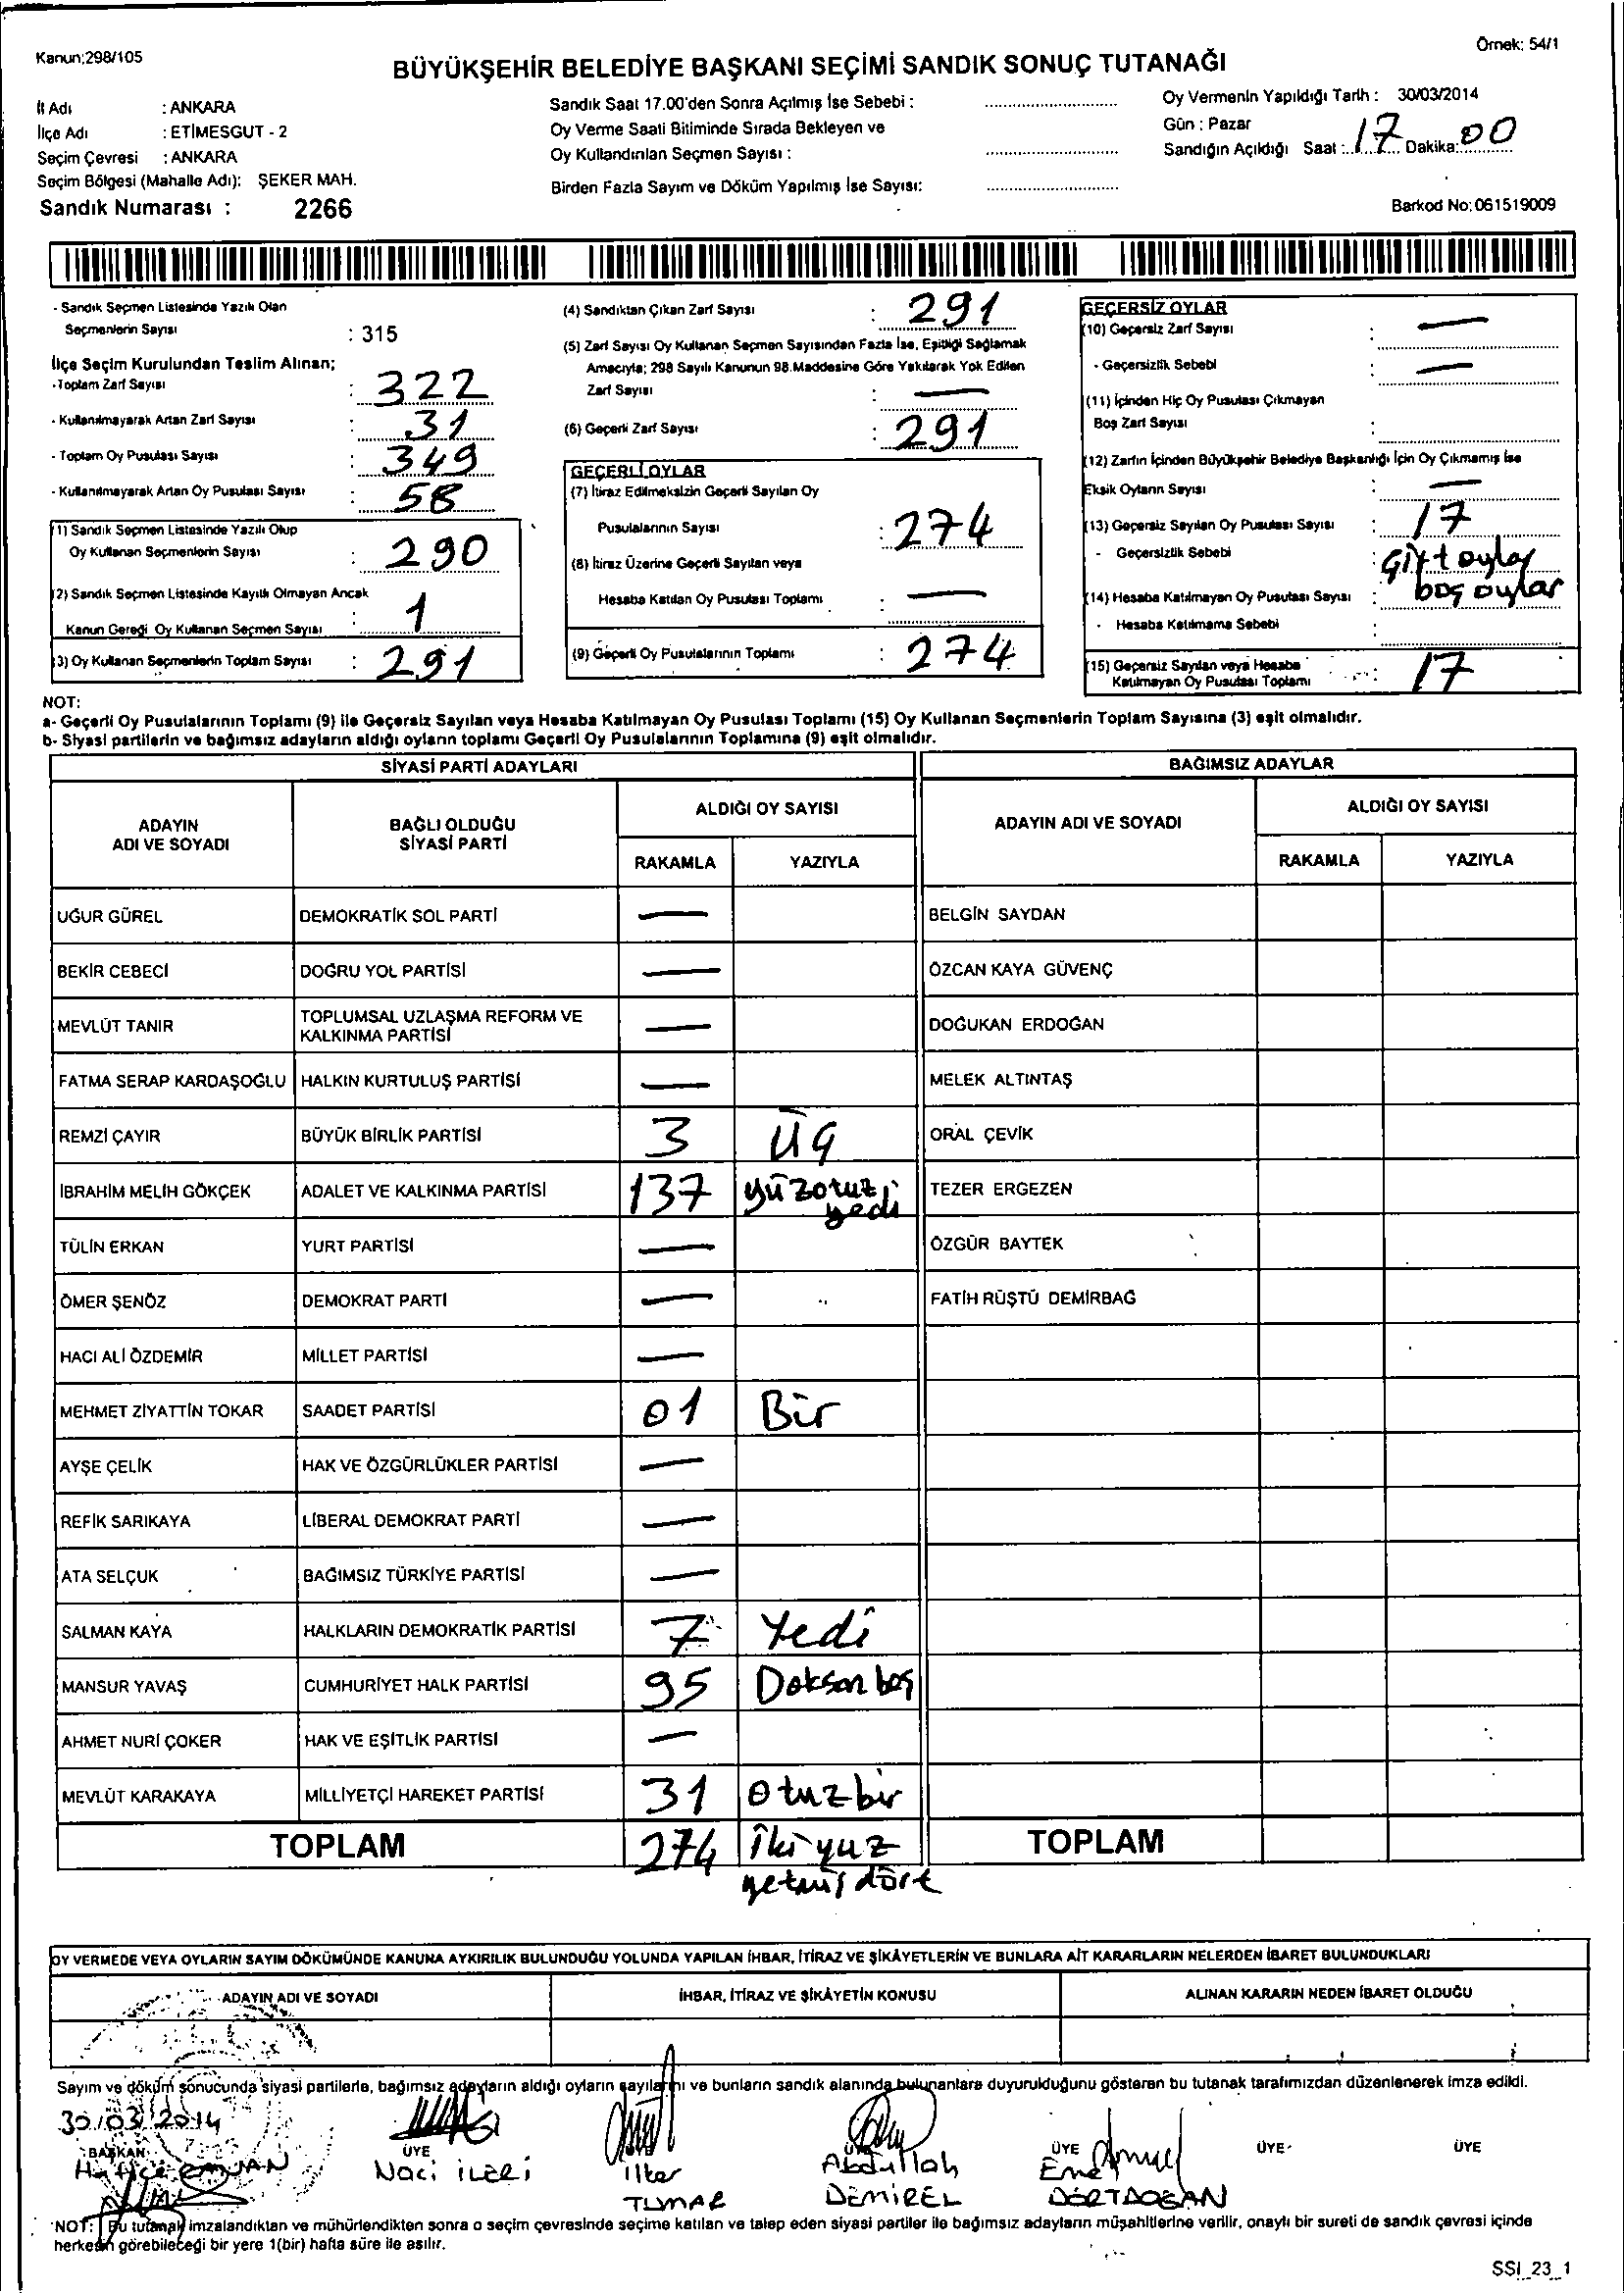 Kanun:298/105
Örnek: 54/1
BÜYÜKŞEHİR BELEDİYE BAŞKANI SEÇİMİ SANDIK SONUÇ TUTANAĞI
İl Adı : ANKARA
İlçe Adı : ETİMESGUT - 2
Seçim Çevresi : ANKARA
Seçim Bölgesi (Mahalle Adı): ŞEKER MAH.
Sandık Numarası : 2266
Sandık Saat 17.00'den Sonra Açılmış İse Sebebi :
Oy Verme Saati Bitiminde Sırada Bekleyen ve
Oy Kullandırılan Seçmen Sayısı :
Birden Fazla Sayım ve Döküm Yapılmış İse Sayısı:
Oy Vermenin Yapıldığı Tarih : 30/03/2014
Gün : Pazar
Sandığın Açıldığı Saat : 17 Dakika: 00
Barkod No: 061519009
- Sandık Seçmen Listesinde Yazılı Olan
Seçmenlerin Sayısı : 315
İlçe Seçim Kurulundan Teslim Alınan;
-Toplam Zarf Sayısı : 322
- Kullanılmayarak Artan Zarf Sayısı : 31
- Toplam Oy Pusulası Sayısı : 349
- Kullanılmayarak Artan Oy Pusulası Sayısı : 58
(1) Sandık Seçmen Listesinde Yazılı Olup
Oy Kullanan Seçmenlerin Sayısı : 290
(2) Sandık Seçmen Listesinde Kayıtlı Olmayan Ancak
Kanun Gereği Oy Kullanan Seçmen Sayısı : 1
(3) Oy Kullanan Seçmenlerin Toplam Sayısı : 291
(4) Sandıktan Çıkan Zarf Sayısı : 291
(5) Zarf Sayısı Oy Kullanan Seçmen Sayısından Fazla İse, Eşitliği Sağlamak
Amacıyla; 298 Sayılı Kanunun 98.Maddesine Göre Yakılarak Yok Edilen
Zarf Sayısı : —
(6) Geçerli Zarf Sayısı : 291
GEÇERLİ OYLAR
(7) İtiraz Edilmeksizin Geçerli Sayılan Oy
Pusulalarının Sayısı : 274
(8) İtiraz Üzerine Geçerli Sayılan veya
Hesaba Katılan Oy Pusulası Toplamı : —
(9) Geçerli Oy Pusulalarının Toplamı : 274
GEÇERSİZ OYLAR
(10) Geçersiz Zarf Sayısı : —
- Geçersizlik Sebebi : —
(11) İçinden Hiç Oy Pusulası Çıkmayan
Boş Zarf Sayısı :
(12) Zarfın İçinden Büyükşehir Belediye Başkanlığı İçin Oy Çıkmamış İse
Eksik Oyların Sayısı : —
(13) Geçersiz Sayılan Oy Pusulası Sayısı : 17
- Geçersizlik Sebebi : Çift oylar
boş oylar
(14) Hesaba Katılmayan Oy Pusulası Sayısı :
- Hesaba Katılmama Sebebi :
(15) Geçersiz Sayılan veya Hesaba
Katılmayan Oy Pusulası Toplamı : 17
NOT:
a- Geçerli Oy Pusulalarının Toplamı (9) ile Geçersiz Sayılan veya Hesaba Katılmayan Oy Pusulası Toplamı (15) Oy Kullanan Seçmenlerin Toplam Sayısına (3) eşit olmalıdır.
b- Siyasi partilerin ve bağımsız adayların aldığı oyların toplamı Geçerli Oy Pusulalarının Toplamına (9) eşit olmalıdır.
SİYASİ PARTİ ADAYLARI
BAĞIMSIZ ADAYLAR
ADAYIN ADI VE SOYADI
BAĞLI OLDUĞU SİYASİ PARTİ
ALDIĞI OY SAYISI
RAKAMLA YAZIYLA
ADAYIN ADI VE SOYADI
ALDIĞI OY SAYISI
RAKAMLA YAZIYLA
UĞUR GÜREL DEMOKRATİK SOL PARTİ — BELGİN SAYDAN
BEKİR CEBECİ DOĞRU YOL PARTİSİ — ÖZCAN KAYA GÜVENÇ
MEVLÜT TANIR TOPLUMSAL UZLAŞMA REFORM VE KALKINMA PARTİSİ — DOĞUKAN ERDOĞAN
FATMA SERAP KARDAŞOĞLU HALKIN KURTULUŞ PARTİSİ — MELEK ALTINTAŞ
REMZİ ÇAYIR BÜYÜK BİRLİK PARTİSİ 3 Üç ORAL ÇEVİK
İBRAHİM MELİH GÖKÇEK ADALET VE KALKINMA PARTİSİ 137 yüzotuz yedi TEZER ERGEZEN
TÜLİN ERKAN YURT PARTİSİ — ÖZGÜR BAYTEK
ÖMER ŞENÖZ DEMOKRAT PARTİ — FATİH RÜŞTÜ DEMİRBAĞ
HACI ALİ ÖZDEMİR MİLLET PARTİSİ —
MEHMET ZİYATTİN TOKAR SAADET PARTİSİ 01 Bir
AYŞE ÇELİK HAK VE ÖZGÜRLÜKLER PARTİSİ —
REFİK SARIKAYA LİBERAL DEMOKRAT PARTİ —
ATA SELÇUK BAĞIMSIZ TÜRKİYE PARTİSİ —
SALMAN KAYA HALKLARIN DEMOKRATİK PARTİSİ 7 Yedi
MANSUR YAVAŞ CUMHURİYET HALK PARTİSİ 95 Doksan beş
AHMET NURİ ÇOKER HAK VE EŞİTLİK PARTİSİ —
MEVLÜT KARAKAYA MİLLİYETÇİ HAREKET PARTİSİ 31 Otuzbir
TOPLAM 274 İkiyüz yetmiş dört TOPLAM
OY VERMEDE VEYA OYLARIN SAYIM DÖKÜMÜNDE KANUNA AYKIRILIK BULUNDUĞU YOLUNDA YAPILAN İHBAR, İTİRAZ VE ŞİKÂYETLERİN VE BUNLARA AİT KARARLARIN NELERDEN İBARET BULUNDUKLARI
ADAYIN ADI VE SOYADI
İHBAR, İTİRAZ VE ŞİKÂYETİN KONUSU
ALINAN KARARIN NEDEN İBARET OLDUĞU
Sayım ve döküm sonucunda siyasi partilerle, bağımsız adayların aldığı oyların sayılarını ve bunların sandık alanında bulunanlara duyurulduğunu gösteren bu tutanak tarafımızdan düzenlenerek imza edildi.
30/03/2014
BAŞKAN ÜYE ÜYE ÜYE ÜYE ÜYE ÜYE
Naci İLERİ
İlker TUMAR
Abdullah DEMİREL
DÖRTDOĞAN
NOT: Bu tutanak imzalandıktan ve mühürlendikten sonra o seçim çevresinde seçime katılan ve talep eden siyasi partiler ile bağımsız adayların müşahitlerine verilir, onaylı bir sureti de sandık çevresi içinde
herkesin görebileceği bir yere 1(bir) hafta süre ile asılır.
SSI_23_1